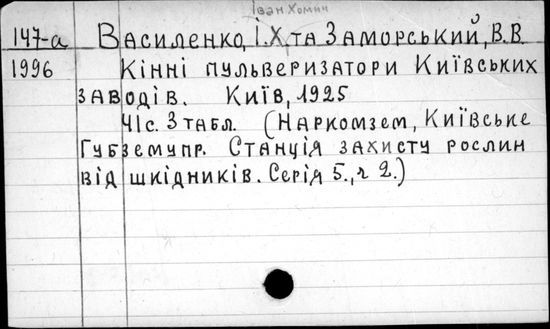 Іван Хомич
147-а Василенко, І.Х. та Заморський, В.В.
1996 Кінні пульверизатори Київських
заводів. Київ, 1925
41с. 3 табл. (Наркомзем, Київське
Губземупр. Станція захисту рослин
від шкідників. Серія 5., ч 2.)